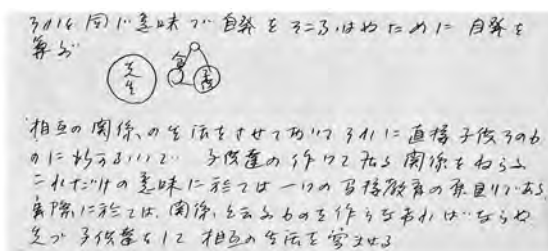 それは同じ意味で自発をそこなはぬために自発を
尊ぶ
先生
子供
相互の関係の生活をさせておいてそれに直接子供そのも
のに於てしないで 子供達の作つて居る関係をねらふ
これだけの意味に於ては一つの間接教育の原則である
実際に於ては、関係と云ふものを作らなければならぬ
先づ子供達をして相互の生活を営ませる